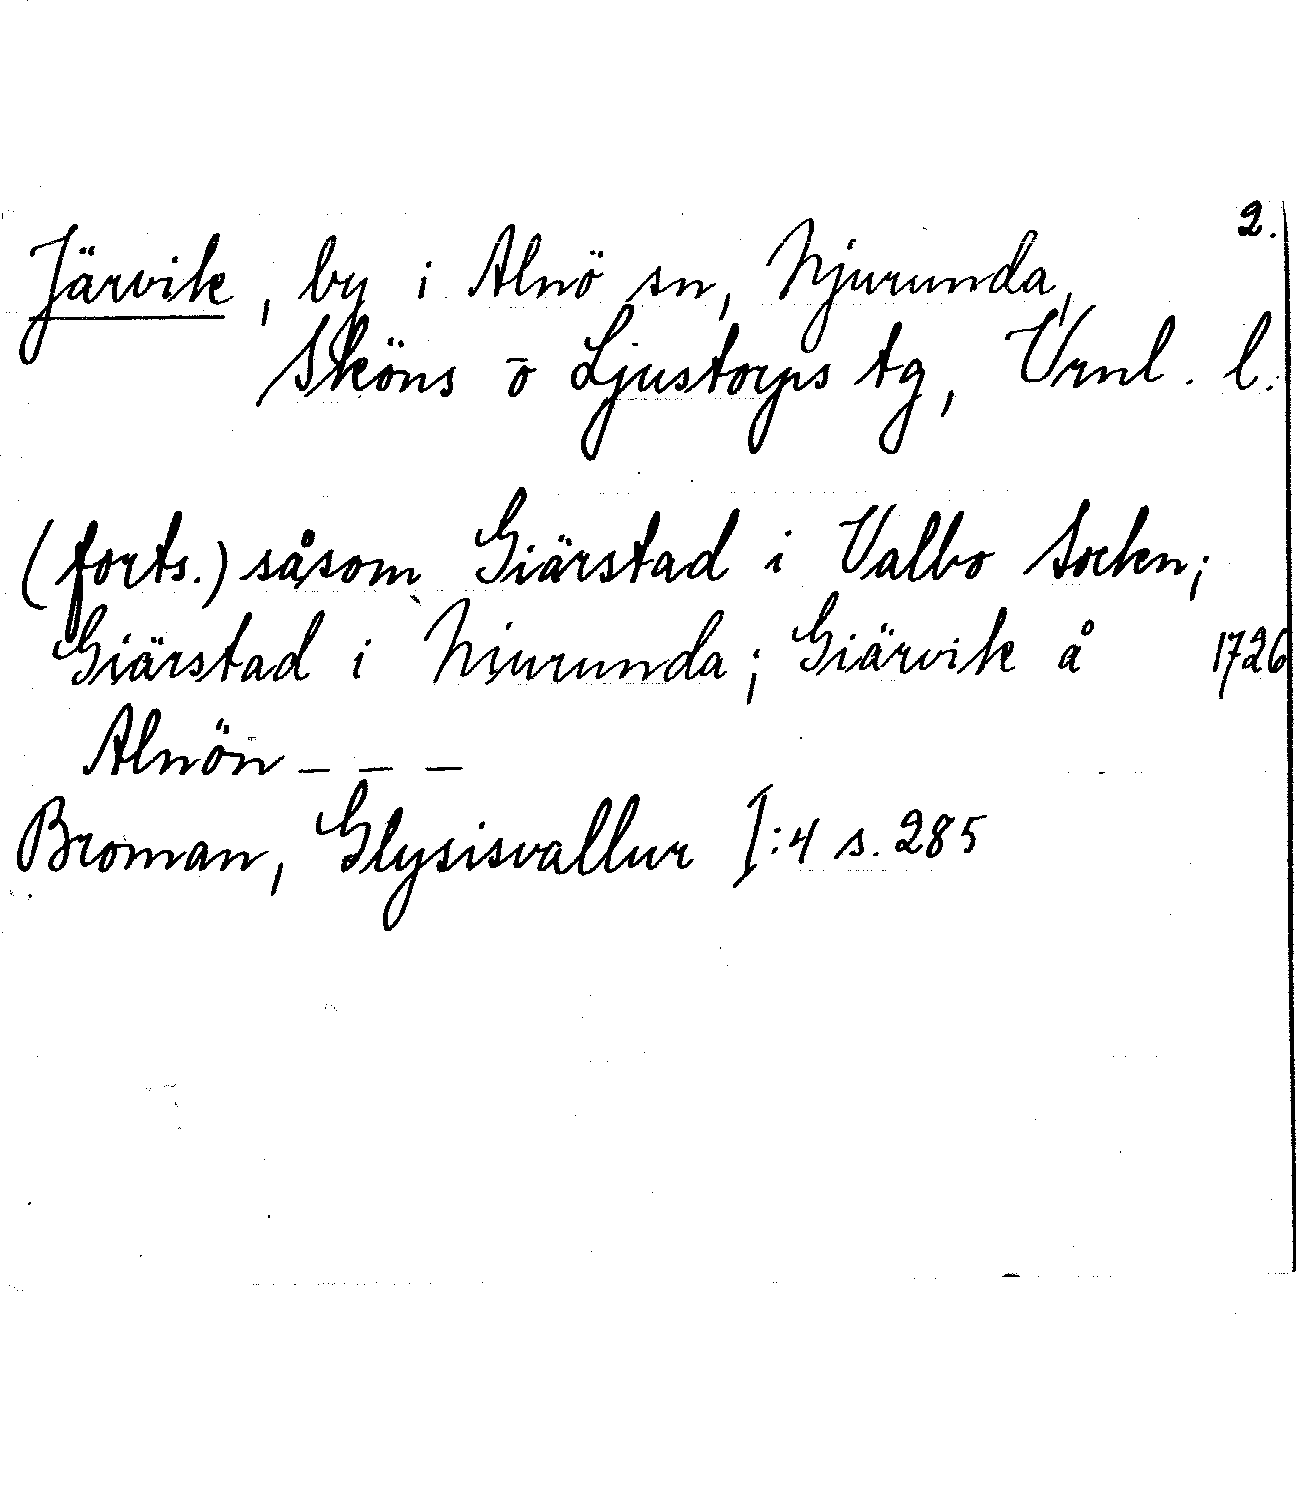 2.
Järvik, by i Alnö sn, Njurunda,
Sköns o Ljustorps tg, Vrnl. l.
(forts.) såsom Giärstad i Valbo Socken;
Giärstad i Niurunda; Giärvik å 1726
Alnön – – –
Broman, Glysisvallur I:4 s. 285